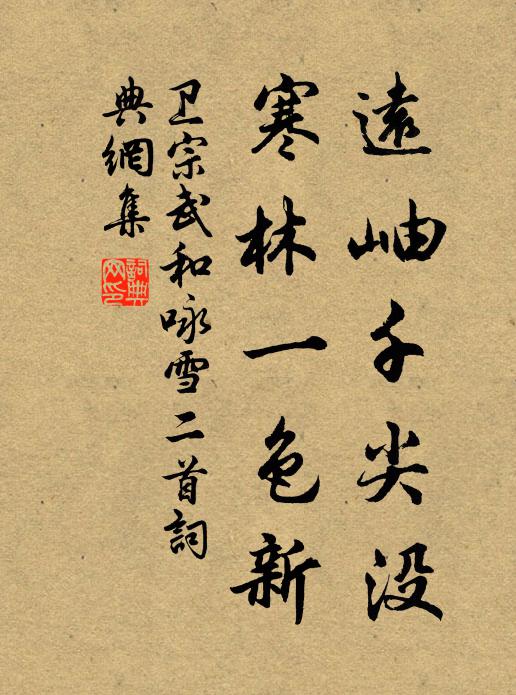 遠岫千尖没
寒林一色新
卫宗武和咏雪二首詞
典網集
詞典网印